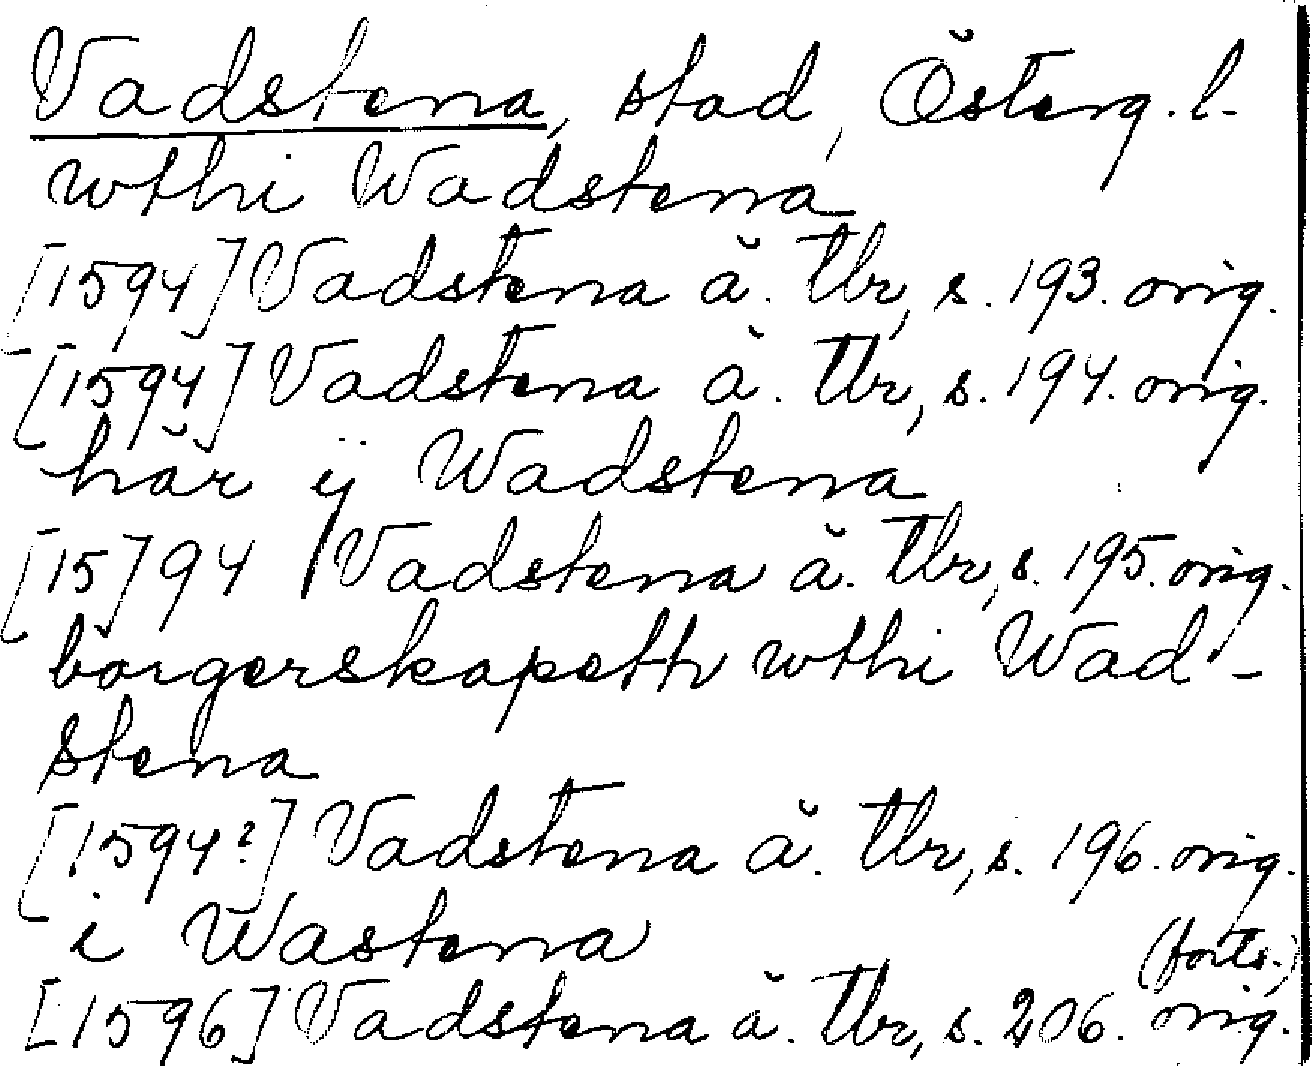 Vadstena, stad, Österg. l.
wthi Wadstena
[1594] Vadstena ä. Tbr, s. 193. orig.
[1594] Vadstena ä. Tbr, s. 194. orig.
här ÿ Wadstena
[15]94 Vadstena ä. Tbr, s. 195. orig.
börgerskapett wthi Wad-
stena
[1594?] Vadstena ä. Tbr, s. 196. orig.
i Wastena
(forts.)
[1596] Vadstena ä. Tbr, s. 206. orig.